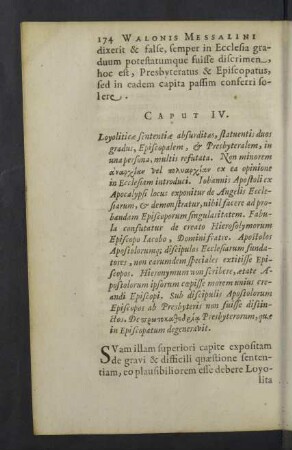 174 WALONIS MESSALINI
dixerit & false, semper in Ecclesia gra-
duum potestatumque fuisse discrimen,
hoc est, Presbyteratus & Episcopatus,
sed in eadem capita passim conferri so-
lere.
CAPUT IV.
Loyoliticæ sententiæ absurditas, statuentis duos
gradus, Episcopalem, & Presbyteralem, in
una persona, multis refutata. Non minorem
ἀναρχίαν vel πολυαρχίαν ex ea opinione
in Ecclesiam introduci. Iohannis Apostoli ex
Apocalypsi locus exponitur de Angelis Eccle-
siarum, & demonstratur, nihil facere ad pro-
bandam Episcoporum singularitatem. Fabu-
la confutatur de creato Hierosolymorum
Episcopo Iacobo, Domini fratre. Apostolos
Apostolorumq; discipulos Ecclesiarum funda-
tores, non earumdem speciales extitisse Epi-
scopos. Hieronymum non scribere, ætate A-
postolorum ipsorum cœpisse morem unius cre-
andi Episcopi. Sub discipulis Apostolorum
Episcopos ab Presbyteris non fuisse distin-
ctos. De πρωτοκαθεδρίᾳ Presbyterorum, quæ
in Episcopatum degeneravit.
SVam illam superiori capite expositam
de gravi & difficili quæstione senten-
tiam, eo plausibiliorem esse debere Loyo-
lita